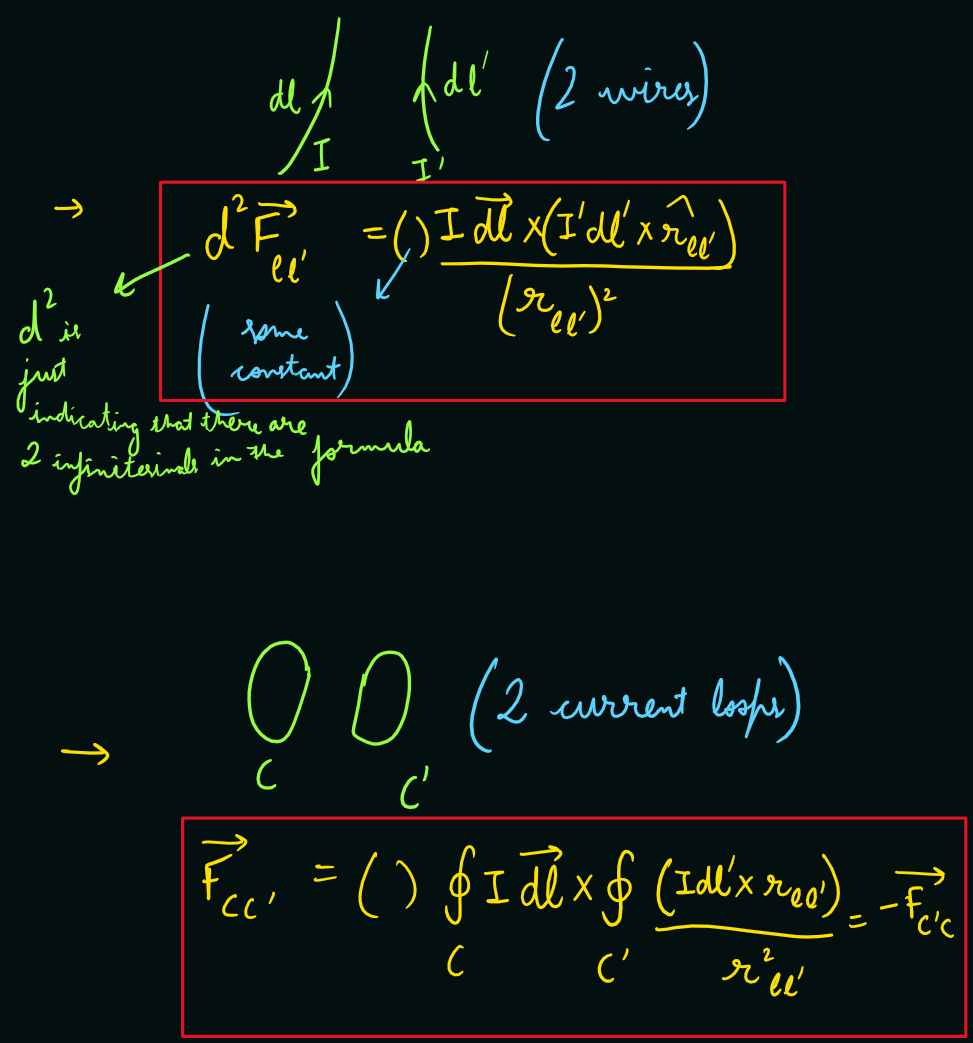 dl dl' (2 wires)
I I'
→ d²F⃗_ll' = ( ) I d⃗l × (I'dl' × r̂_ll') / (r_ll')²
(some constant)
d² is
just
indicating that there are
2 infinitesimals in the formula
(2 current loops)
→ C C'
F⃗_CC' = ( ) ∮_C I d⃗l × ∮_C' (Idl' × r_ll') / r²_ll' = -F⃗_C'C